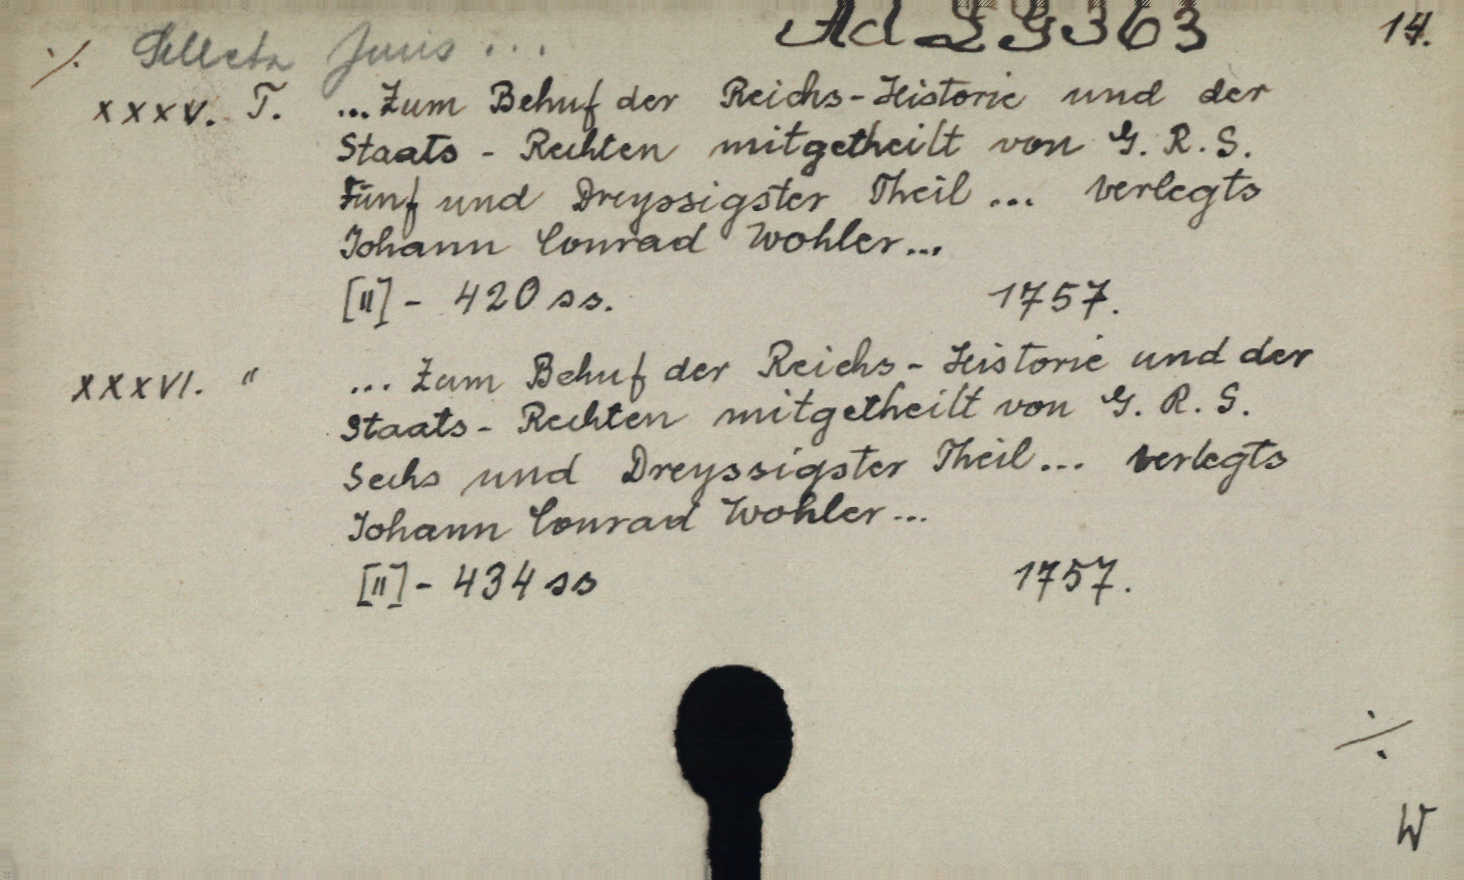 Ad 29363 14.
·/. Selecta Juris ...
XXXV. T. ... Zum Behuf der Reichs-Historie und der
Staats - Rechten mitgetheilt von G. R. S.
Fünf und Dreyssigster Theil ... verlegts
Johann Conrad Wohler ...
[II] - 420 ss. 1757.
XXXVI. " ... Zum Behuf der Reichs - Historie und der
Staats - Rechten mitgetheilt von G. R. S.
Sechs und Dreyssigster Theil ... verlegts
Johann Conrad Wohler ...
[II] - 434 ss 1757.
·/.
W